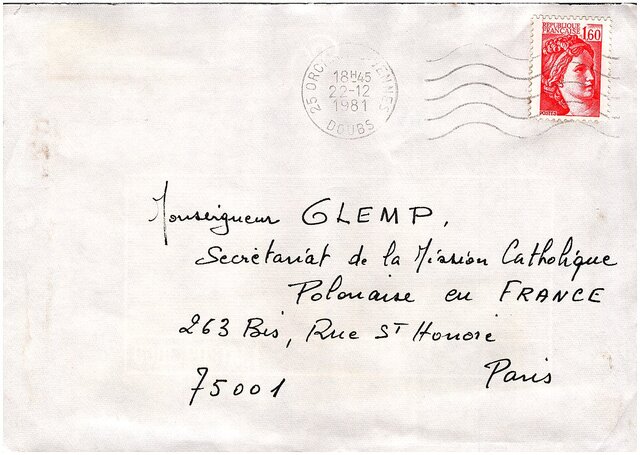 RÉPUBLIQUE
FRANÇAISE 1,60
POSTES
18H45
22-12
1981
25 ORC
DOUBS
Monseigneur GLEMP,
Secrétariat de la Mission Catholique
Polonaise en FRANCE
263 Bis, Rue St Honoré
Paris
75001